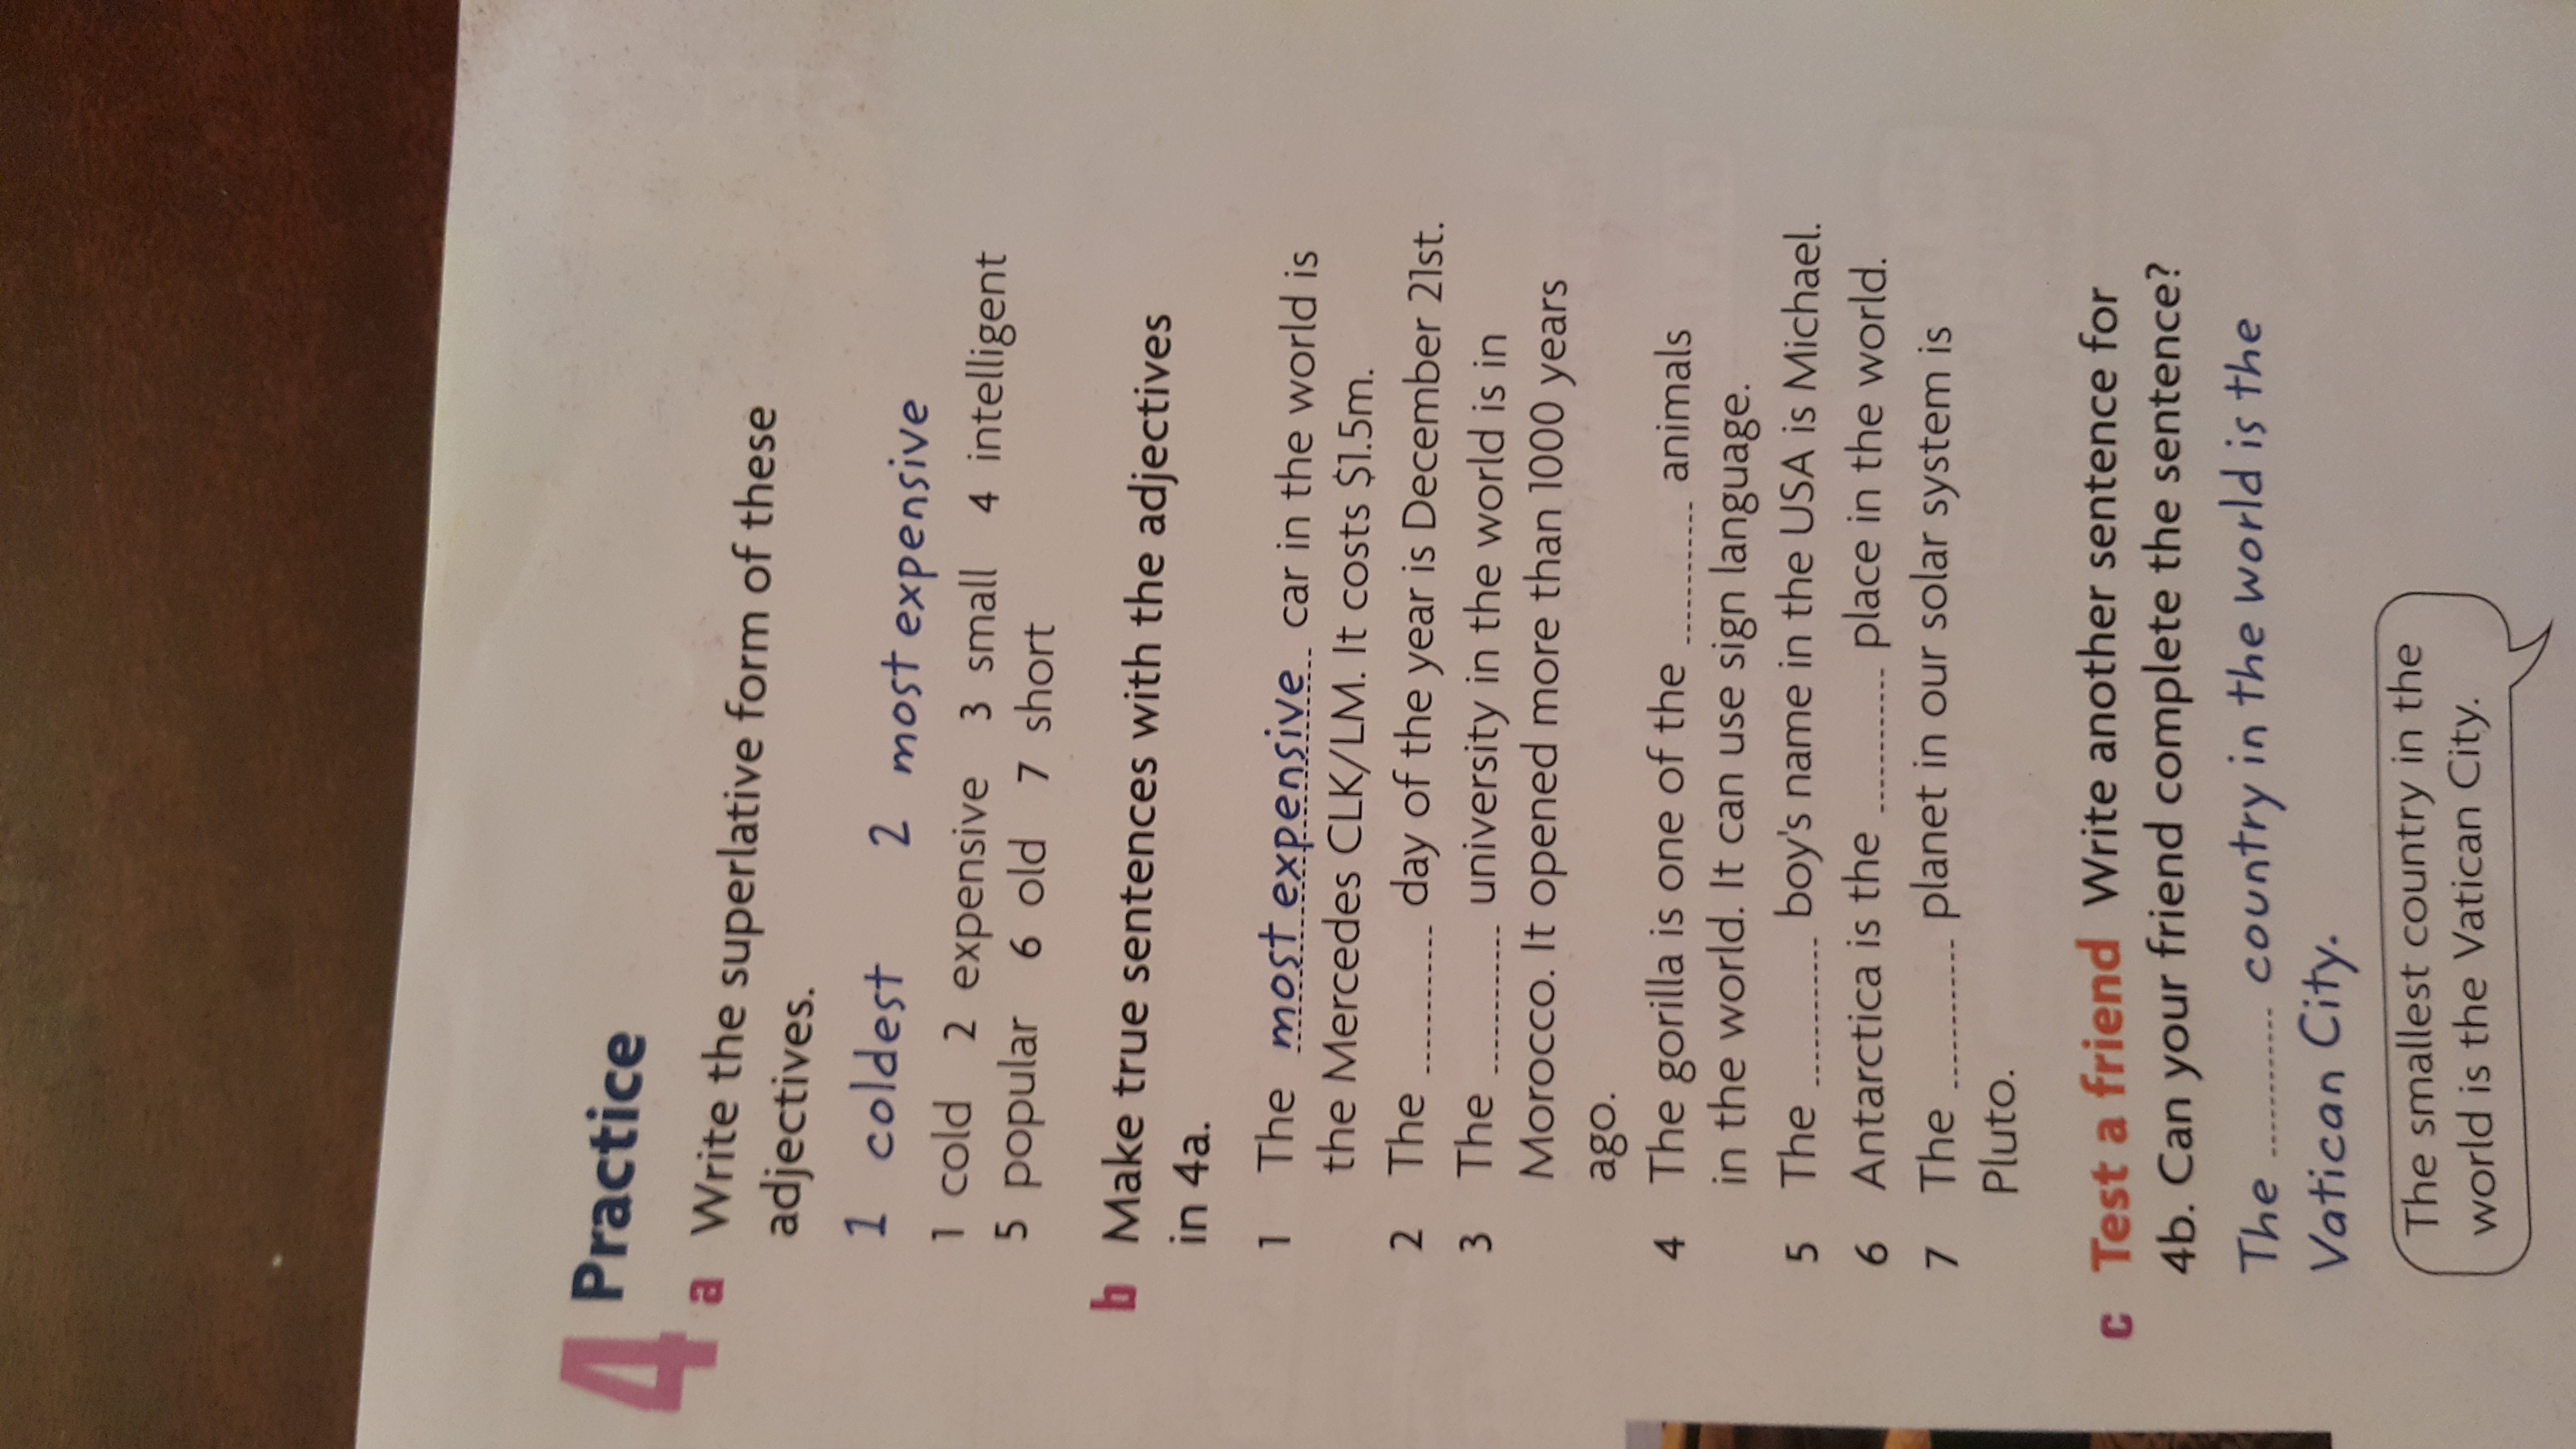 4 Practice
a Write the superlative form of these
adjectives.
1 coldest 2 most expensive
1 cold 2 expensive 3 small 4 intelligent
5 popular 6 old 7 short
b Make true sentences with the adjectives
in 4a.
1 The most expensive car in the world is
the Mercedes CLK/LM. It costs $1.5m.
2 The ............ day of the year is December 21st.
3 The ............ university in the world is in
Morocco. It opened more than 1000 years
ago.
4 The gorilla is one of the ............ animals
in the world. It can use sign language.
5 The ............ boy's name in the USA is Michael.
6 Antarctica is the ............ place in the world.
7 The ............ planet in our solar system is
Pluto.
c Test a friend Write another sentence for
4b. Can your friend complete the sentence?
The ............ country in the world is the
Vatican City.
The smallest country in the
world is the Vatican City.